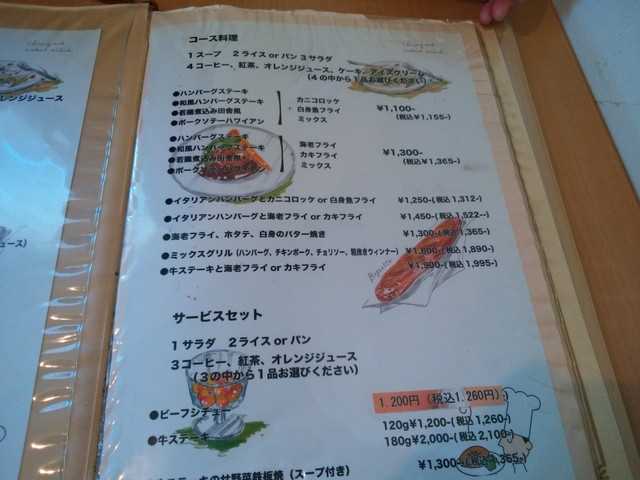 レンジジュース
ュース)
コース料理
1スープ 2ライス or パン 3サラダ
4コーヒー、紅茶、オレンジジュース、ケーキ、アイスクリーム
(4の中から1品お選びください)
●ハンバーグステーキ
●和風ハンバーグステーキ
●若鶏煮込み田舎風
●ポークソテーハワイアン
+
カニコロッケ
白身魚フライ
ミックス
¥1,100-
(税込¥1,155-)
●ハンバーグステーキ
●和風ハンバーグステーキ
●若鶏煮込み田舎風
●ポークソテーハワイアン
海老フライ
カキフライ
ミックス
¥1,300-
(税込¥1,365-)
●イタリアンハンバーグとカニコロッケ or 白身魚フライ ¥1,250-(税込 1,312-)
●イタリアンハンバーグと海老フライ or カキフライ ¥1,450-(税込 1,522--)
●海老フライ、ホタテ、白身のバター焼き ¥1,300-(税込 1,365-)
●ミックスグリル (ハンバーグ、チキンポーク、チョリソー、粗挽きウィンナー) ¥1,800-(税込 1,890-)
●牛ステーキと海老フライ or カキフライ ¥1,900-(税込 1,995-)
サービスセット
1サラダ 2ライス or パン
3コーヒー、紅茶、オレンジジュース
(3の中から1品お選びください)
●ビーフシチュー 1.200円 (税込1.260円)
●牛ステーキ 120g¥1,200-(税込 1,260-)
180g¥2,000-(税込 2,100-)
野菜鉄板焼 (スープ付き) ¥1,300-(税込 1,365-)